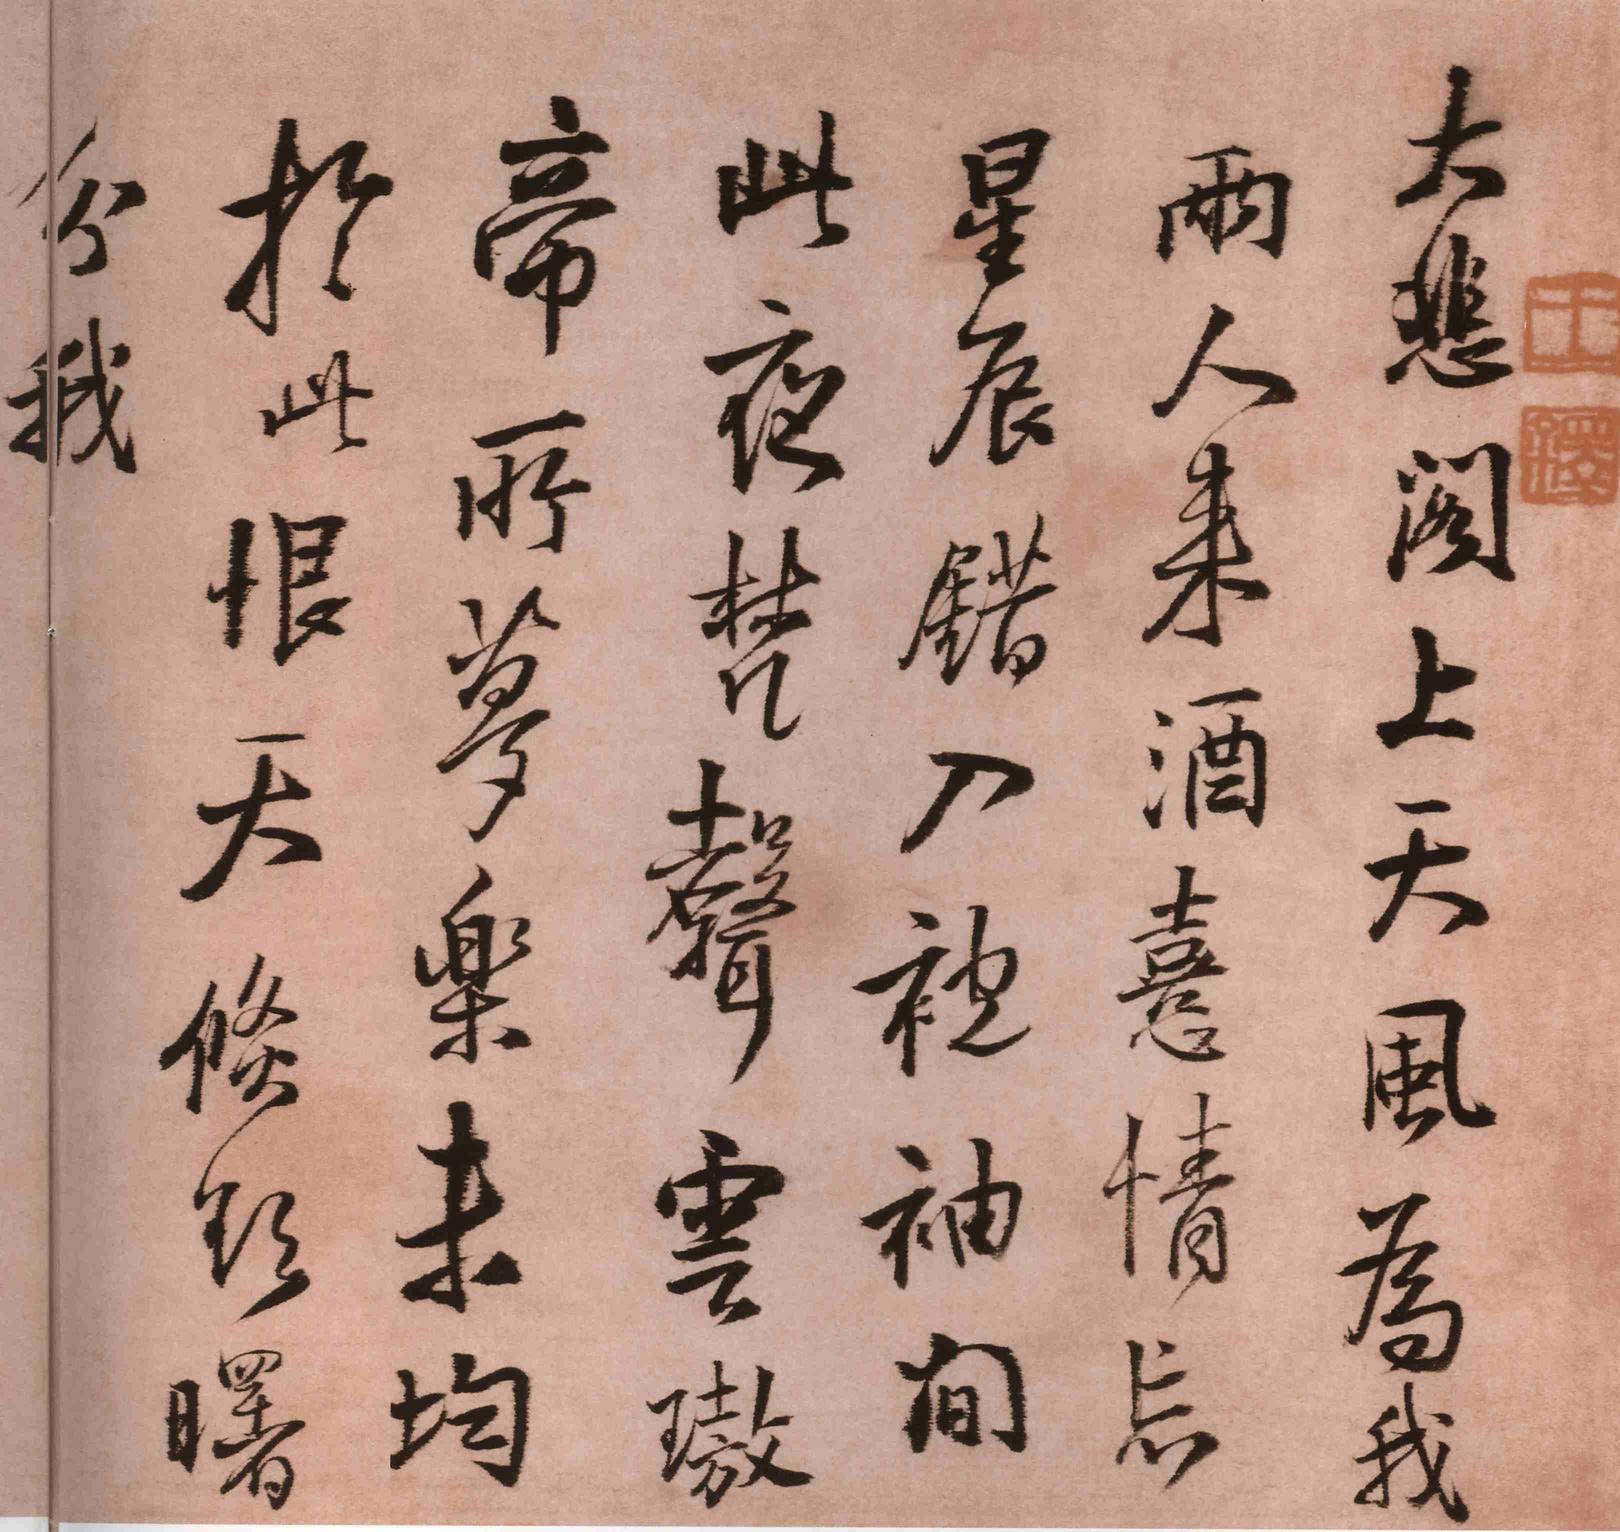 大悲閣上天風為我
兩人来酒憙情忘
星辰錯入袍袖間
此夜梵聲雲璈
帝所夢樂未均
於此恨天倏欲曙
分我
王
鐸